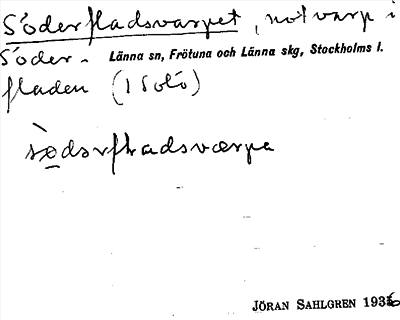 Söderfladsvarpet, notvarp i
Söder- Länna sn, Frötuna och Länna skg, Stockholms l.
fladen (
JÖRAN SAHLGREN 1936